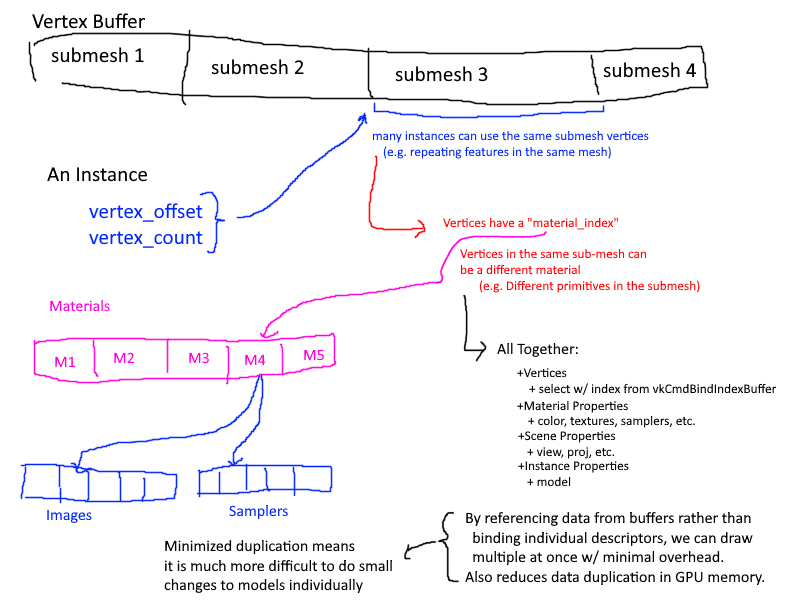 Vertex Buffer
submesh 1
submesh 2
submesh 3
submesh 4
many instances can use the same submesh vertices
(e.g. repeating features in the same mesh)
An Instance
vertex_offset
vertex_count
Vertices have a "material_index"
Vertices in the same sub-mesh can
be a different material
(e.g. Different primitives in the submesh)
Materials
M1
M2
M3
M4
M5
All Together:
+Vertices
+ select w/ index from vkCmdBindIndexBuffer
+Material Properties
+ color, textures, samplers, etc.
+Scene Properties
+ view, proj, etc.
+Instance Properties
+ model
Images
Samplers
Minimized duplication means
it is much more difficult to do small
changes to models individually
By referencing data from buffers rather than
binding individual descriptors, we can draw
multiple at once w/ minimal overhead.
Also reduces data duplication in GPU memory.